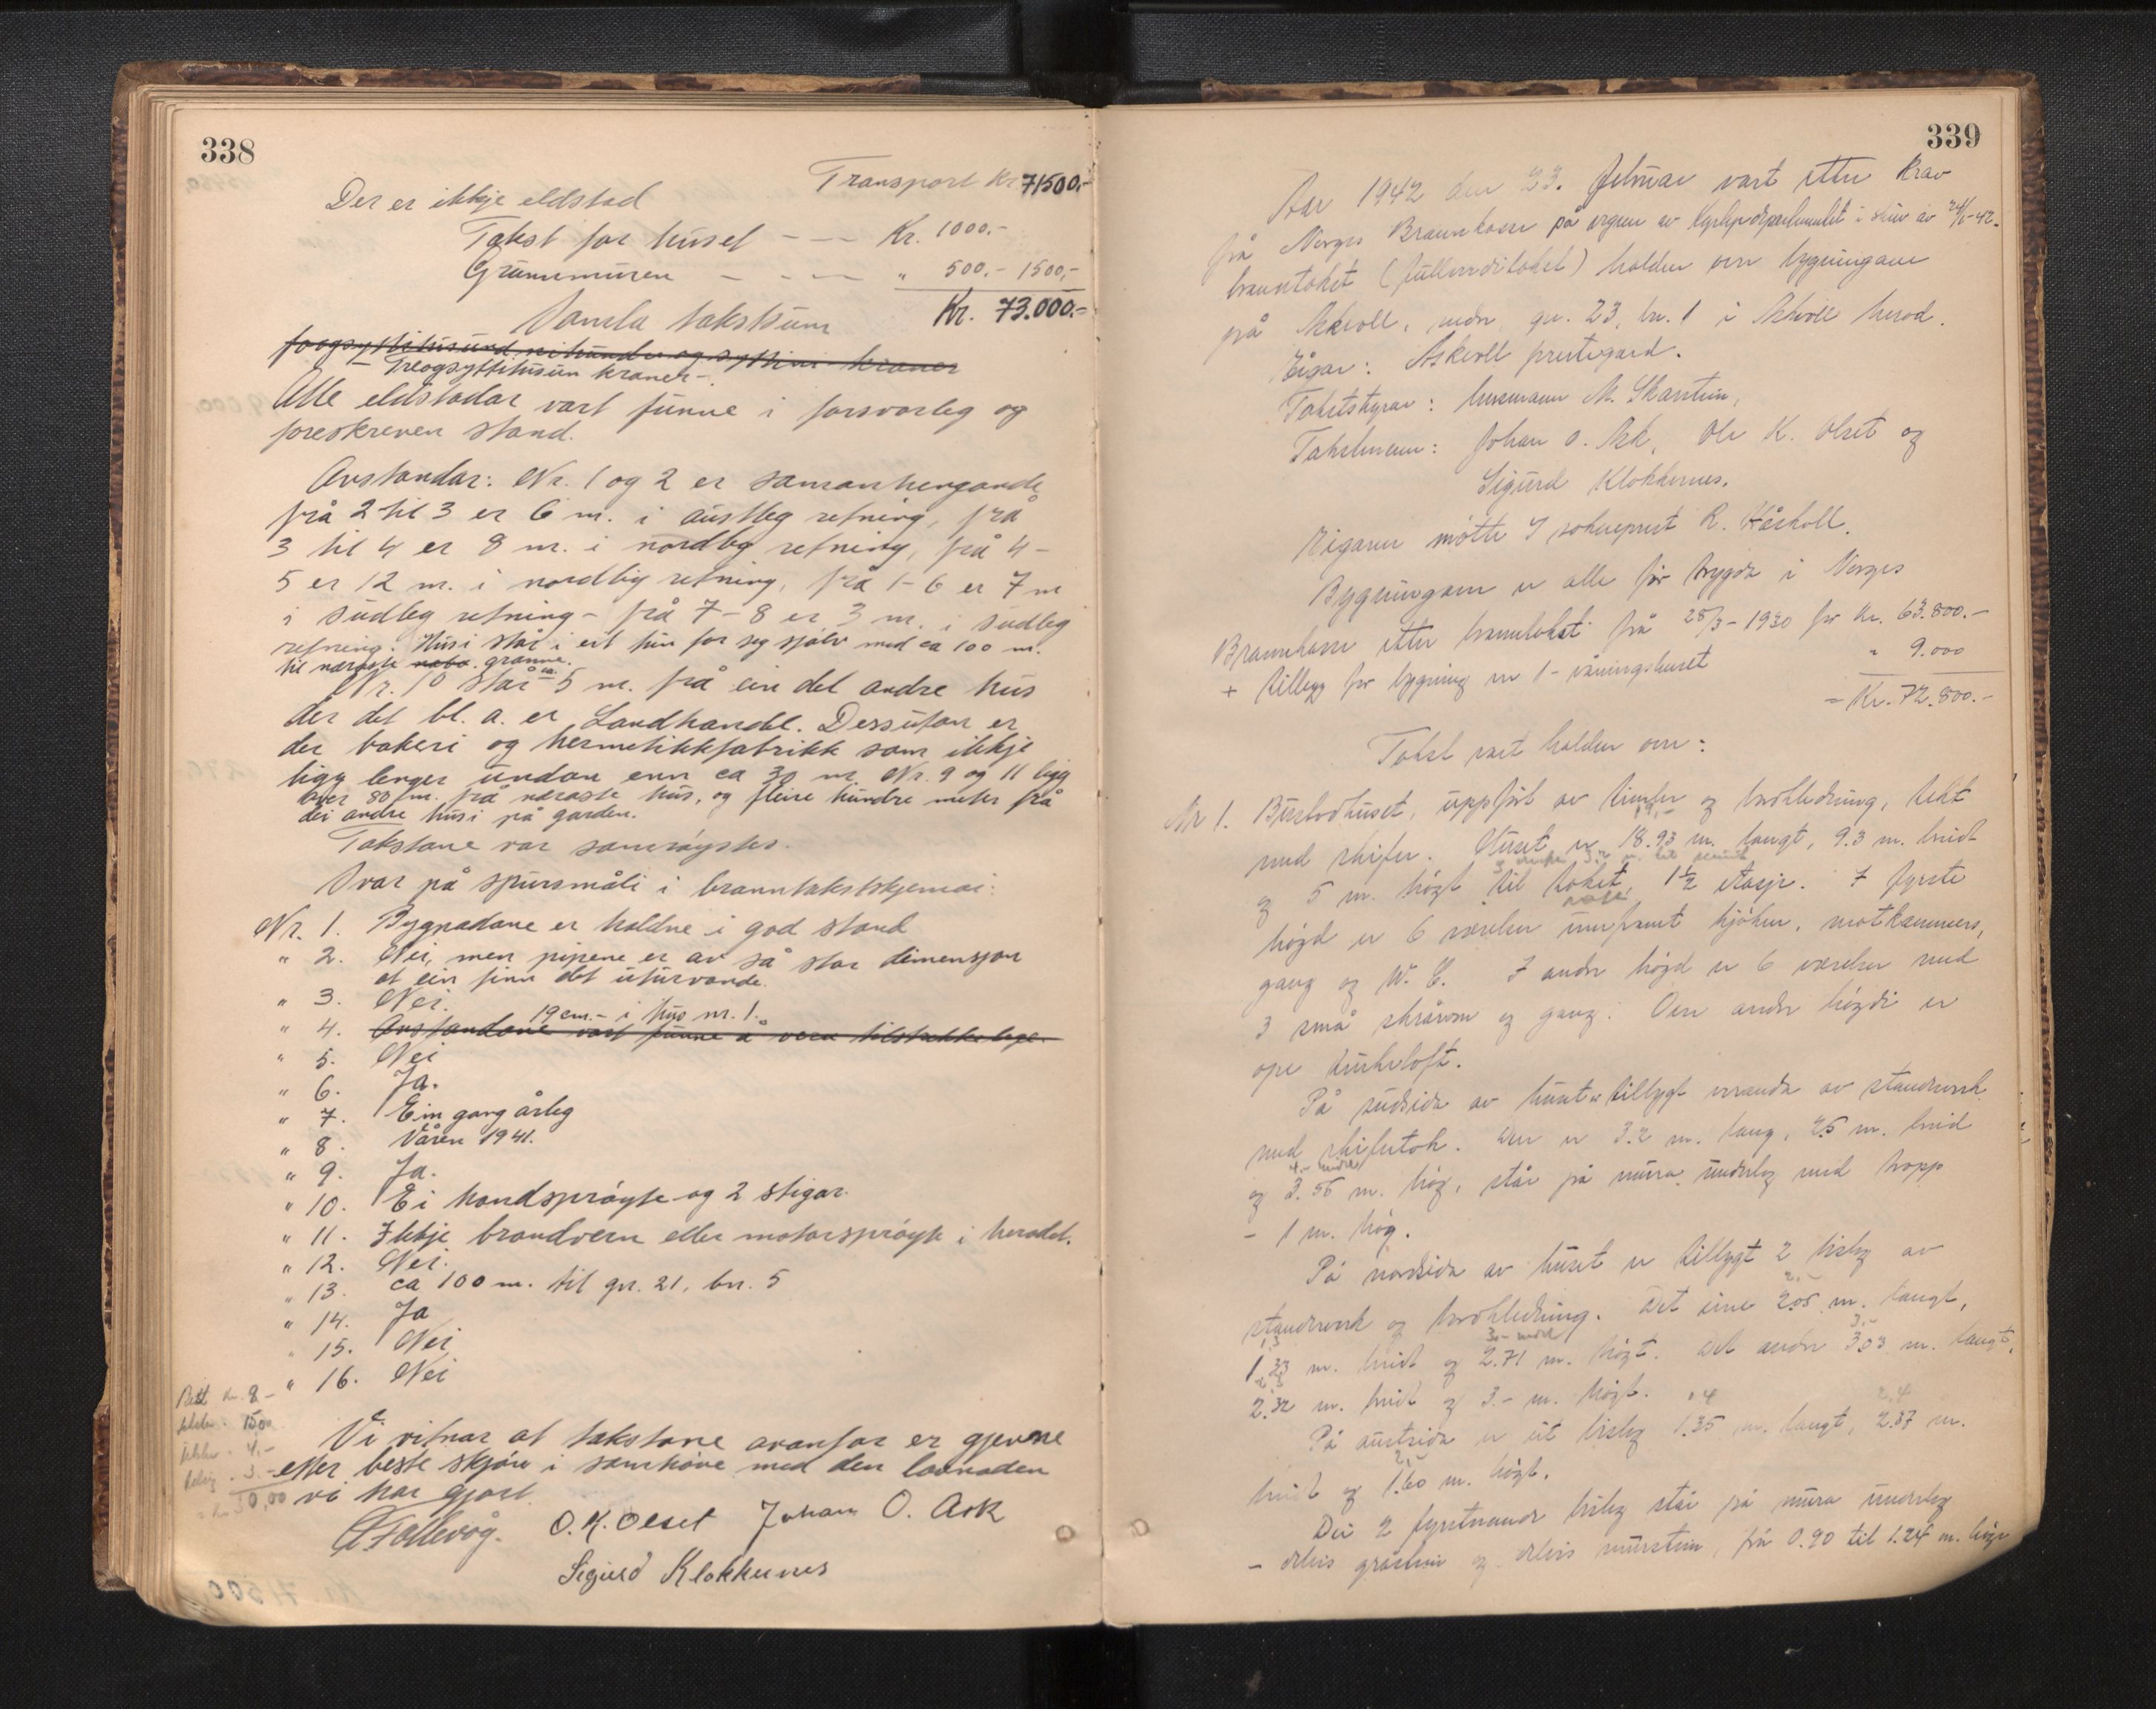 338
Transport Kr. 71500.-
Der er ikkje eldstad
Takst for huset - - - Kr. 1000.-
Grunnmuren - - - - " 500.- 1500,-
Samla takstsum Kr. 73.000.-
- Treogsyttitusun kroner -.
Alle eldstadar vart funne i forsvarleg og
foreskreven stand.
Avstandar: Nr. 1 og 2 er samanhengande,
frå 2 til 3 er 6 m. i austleg retning, frå
3 til 4 er 8 m. i nordleg retning, frå 4-
5 er 12 m. i nordleg retning, frå 1-6 er 7 m
i sudleg retning - frå 7-8 er 3 m. i sudleg
retning. Husi står i eit tun for seg sjølv med ca 100 m.
til næraste nabo. granne.
Nr. 10 står 5 m. frå ein del andre hus
der det bl. a. er Landhandel. Dessutan er
der bakeri og hermetikkfabrikk som ikkje
ligg lenger undan enn ca 30 m. Nr. 9 og 11 ligg
over 80 m. frå næraste hus, og fleire hundre meter frå
dei andre husi på garden.
Takstane var samrøystes.
Svar på spursmåli i branntakstskjemai:
Nr. 1. Bygnadane er haldne i god stand
" 2. Nei, men pipene er av så stor dimensjon
at ein finn det uturvande.
" 3. Nei.
19 cm. - i hus nr. 1.
" 4. Avstandane vart funne å vera tilstrekkelege.
" 5. Nei
" 6. Ja.
" 7. Ein gang årleg
" 8. Våren 1941.
" 9. Ja.
" 10. Ei handsprøyte og 2 stigar.
" 11. Ikkje brandvern eller motorsprøyte i heradet.
" 12. Nei.
" 13. ca 100 m. til gr. 21, bn. 5
" 14. Ja
" 15. Nei
" 16. Nei
Vi vitnar at takstane ovanfor er gjevne
etter beste skjøn i samhøve med den lovnaden
vi har gjort.
O. K. Olset Johan O. Ask
Sigurd Klokkernes
339
Aar 1942 den 23. februar vart etter krav
frå Norges Brannkasse på
branntakst (fullverditakst) halden over bygningane
på Askvoll, gr. 23, bn. 1 i Askvoll herad.
Eigar: Askvoll prestegard.
Takststyrar: lensmann M.
Takstmenn: Johan O. Ask, Ole K. Olset og
Sigurd Klokkernes.
Eigaren møtte v/ sokneprest R.
Bygningane er alle før trygda i Norges
Brannkasse etter branntakst frå 28/3-1930 for kr. 63.800.-
+ tillegg for bygning nr 1 - våningshuset " 9.000
= Kr. 72.800.-
Takst vart halden over:
Nr 1. Bustadhuset, uppført av timber og bordkledning, tekt
med skifer. Huset er 18.93 m. langt, 9.3 m. breidt
og 5 m. høgt til taket, 1½ etasje. I fyrste
høgd er 6 værelser umframt kjøken, matkammers,
gang og W. C. I andre høgd er 6 værelser med
3 små skråرom og gang. Over andre høgdi er
ope turkeloft.
På sudsida av huset er tilbygt veranda av standverk
med skifertak. Den er 3.2 m. lang, 2.5 m. breid
og 3.56 m. høg, står på mura underlag med trapp
- 1 m. høg.
På nordsida av huset er tilbygt 2 bislag av
standverk og bordkledning. Det eine 2.05 m. langt,
1.33 m. breidt og 2.71 m. høgt. Det andre 3.03 m. langt,
2.32 m. breidt og 3.- m. høgt.
På austsida er eit bislag 1.35 m. langt, 2.37 m.
breidt og 1.60 m. høgt.
Dei 2 fyrstnemde bislag står på mura underlag
- delvis gråstein og delvis murstein, frå 0.90 til 1.24 m. høge